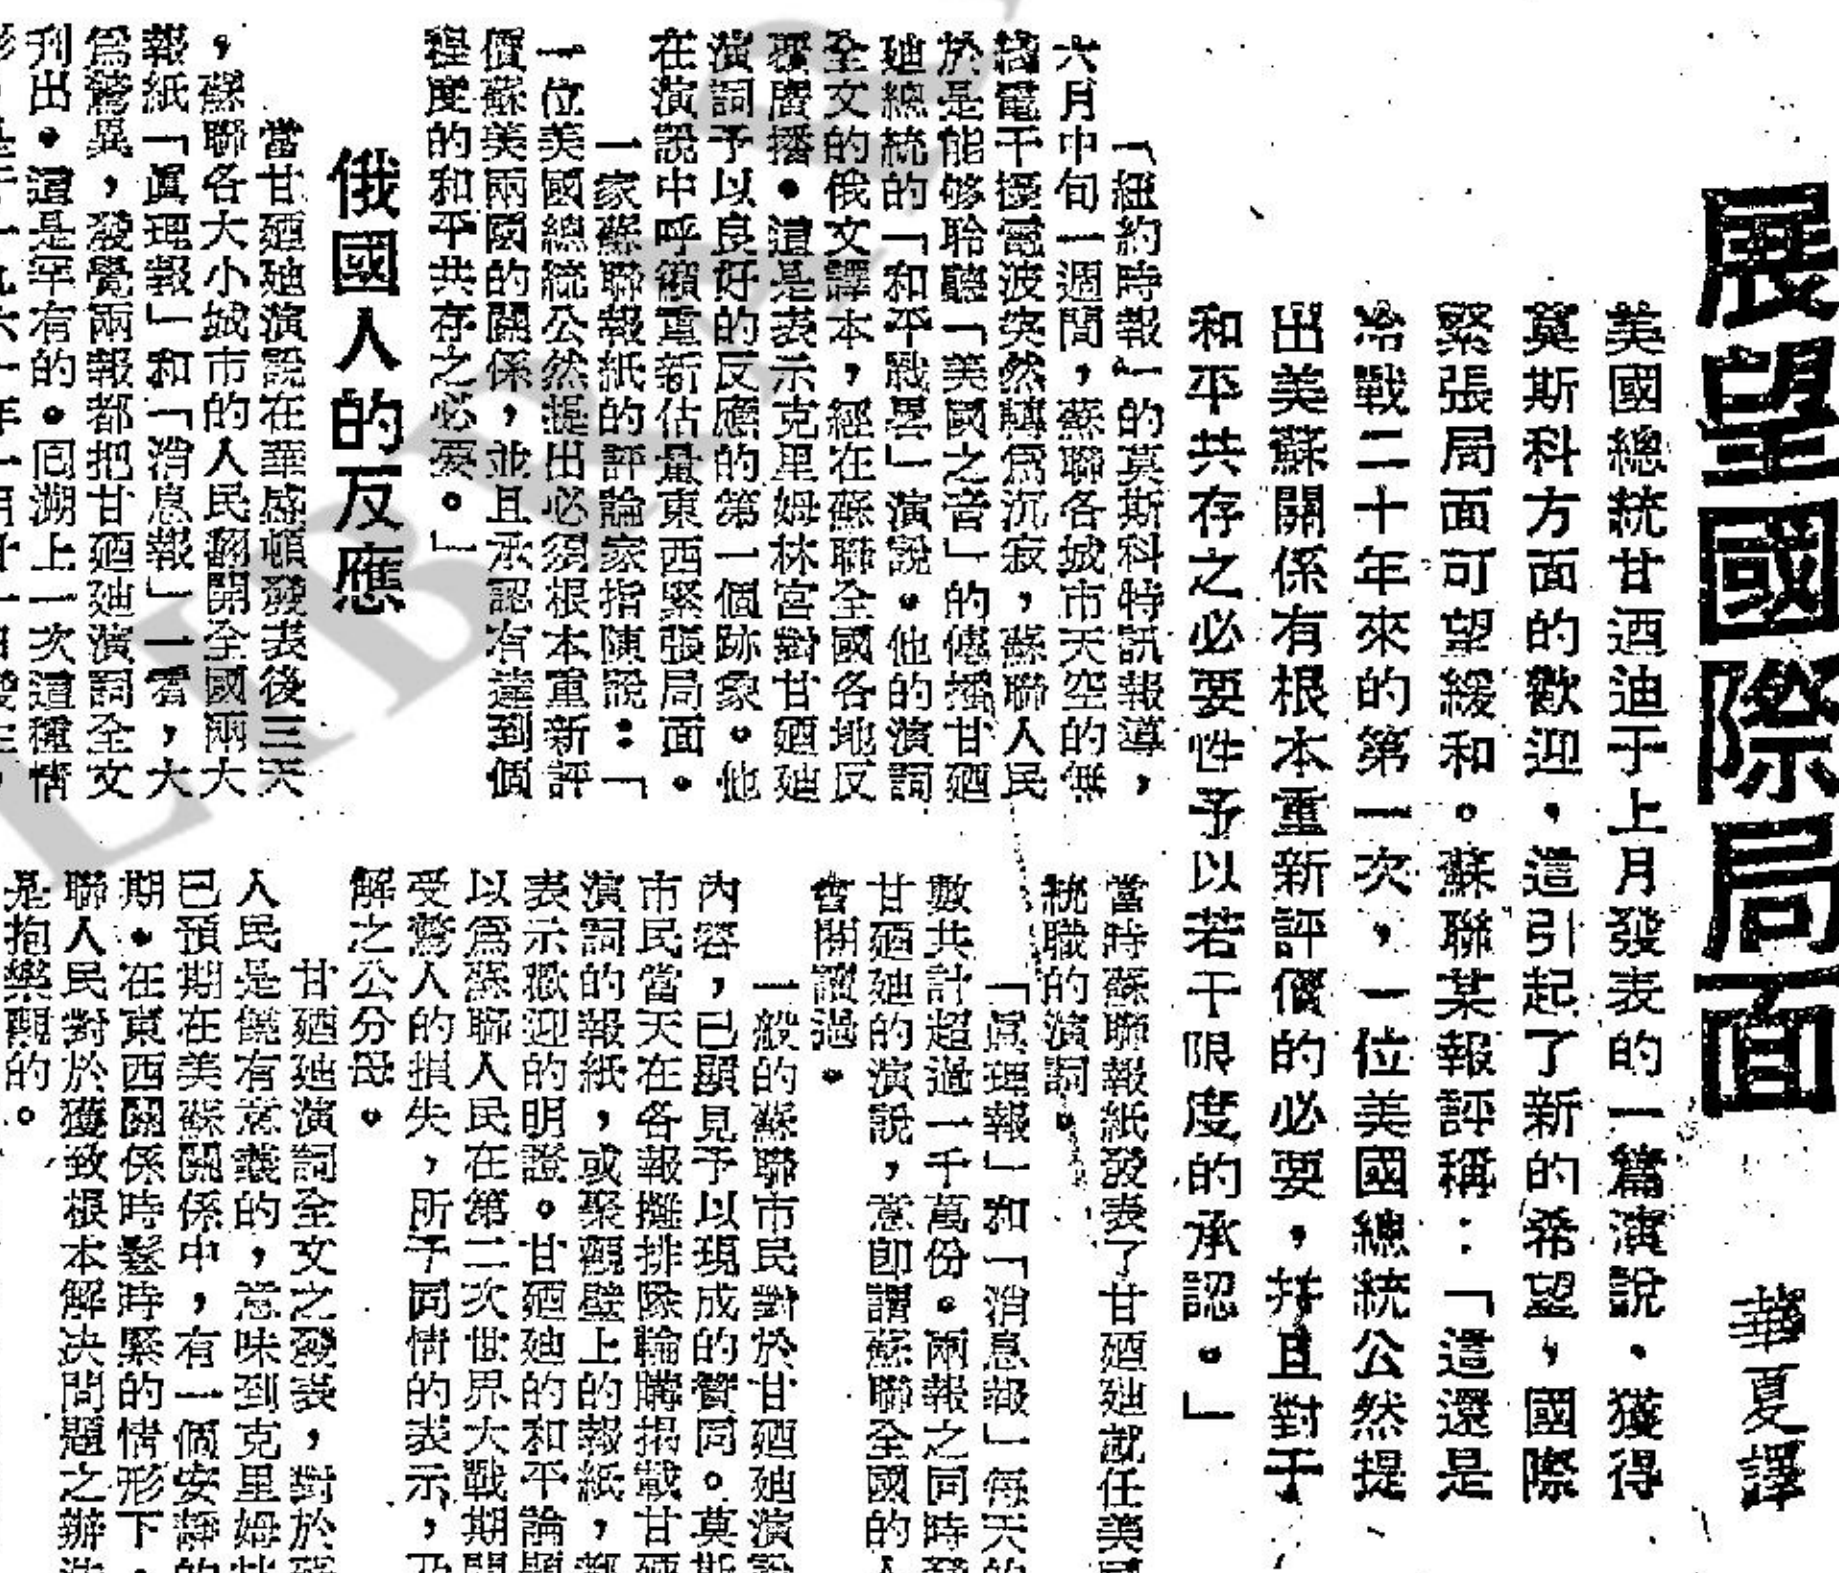 展望國際局面
華夏譯
美國總統甘迺迪于上月發表的一篇演說，獲得
莫斯科方面的歡迎，這引起了新的希望，國際
緊張局面可望緩和。蘇聯某報評稱：「這還是
冷戰二十年來的第一次，一位美國總統公然提
出美蘇關係有根本重新評價的必要，并且對于
和平共存之必要性予以若干限度的承認。」
「紐約時報」的莫斯科特訊報導，
六月中旬一週間，蘇聯各城市天空的無
綫電干擾電波突然轉爲沉寂，蘇聯人民
於是能够聆聽「美國之音」的傳播甘迺
廸總統的「和平戰畧」演說。他的演詞
全文的俄文譯本，經在蘇聯全國各地反
覆廣播。這是表示克里姆林宮對甘迺廸
演詞予以良好的反應的第一個跡象。他
在演說中呼籲重新估量東西緊張局面。
一家蘇聯報紙的評論家指陳說：「
一位美國總統公然提出必須根本重新評
價蘇美兩國的關係，並且承認有達到個
程度的和平共存之必要。」
俄國人的反應
當甘迺廸演說在華盛頓發表後三天
，蘇聯各大小城市的人民翻開全國兩大
報紙「眞理報」和「消息報」一看，大
爲驚異，發覺兩報都把甘迺廸演詞全文
刋出。這是罕有的。囘溯上一次這種情
當時蘇聯報紙發表了甘迺廸就任美國
統職的演詞。
「眞理報」和「消息報」每天的
數共計超過一千萬份。兩報之同時發
甘迺廸的演說，意卽謂蘇聯全國的人
會閱讀過。
一般的蘇聯市民對於甘迺廸演說
內容，已顯見予以現成的贊同。莫斯
市民當天在各報攤排隊輪購揭載甘迺
演詞的報紙，或聚觀壁上的報紙，都
表示歡迎的明證。甘迺廸的和平論題
以爲蘇聯人民在第二次世界大戰期間
受驚人的損失，所予同情的表示，乃
解之公分母。
甘迺廸演詞全文之發表，對於蘇
人民是饒有意義的，意味到克里姆林
已預期在美蘇關係中，有一個安靜的
期。在東西關係時鬆時緊的情形下，
聯人民對於獲致根本解決問題之辦法
是抱樂觀的。